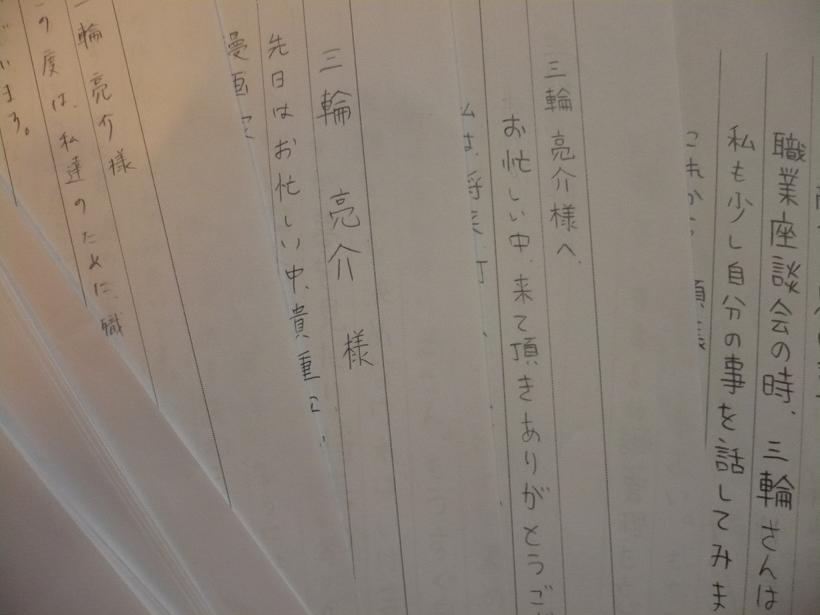 職業座談会の時、三輪さんは
私も少し自分の事を話してみま
これから
三輪亮介様へ
お忙しい中、来て頂きありがとうご
私は、将来、
三輪 亮介 様
先日はお忙しい中、貴重
漫画家
三輪 亮介様
の度は、私達のために、職
います。